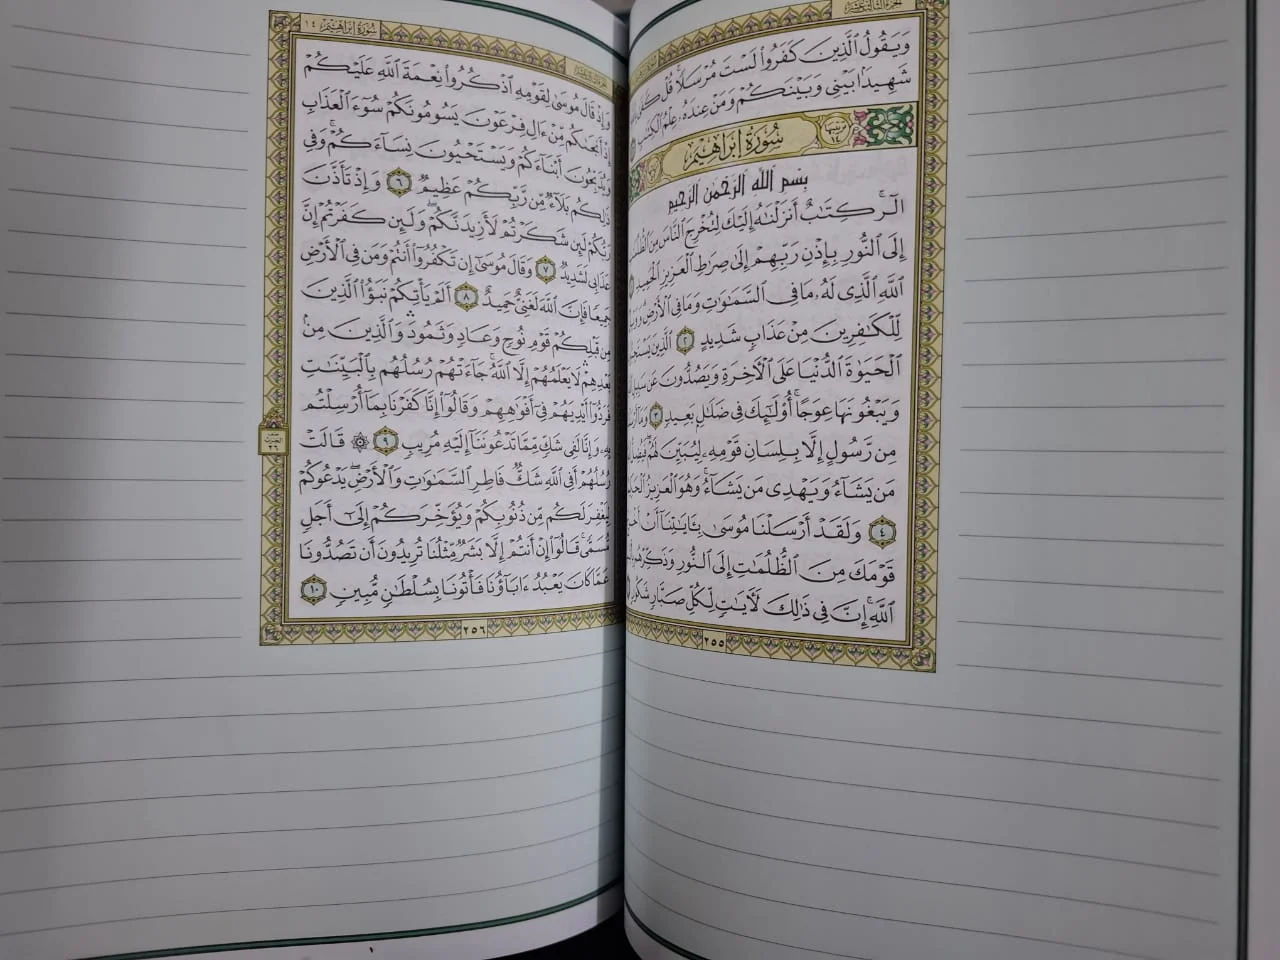 الجزء الثالث عشر
وَيَقُولُ الَّذِينَ كَفَرُوا۟ لَسْتَ مُرْسَلًا ۚ قُلْ كَفَىٰ
شَهِيدًۢا بَيْنِى وَبَيْنَكُمْ وَمَنْ عِندَهُۥ عِلْمُ ٱلْكِتَٰبِ
سُورَةُ إِبْرَاهِيمَ
بِسْمِ ٱللَّهِ ٱلرَّحْمَٰنِ ٱلرَّحِيمِ
الٓر ۚ كِتَٰبٌ أَنزَلْنَٰهُ إِلَيْكَ لِتُخْرِجَ ٱلنَّاسَ مِنَ ٱلظُّلُمَٰتِ
إِلَى ٱلنُّورِ بِإِذْنِ رَبِّهِمْ إِلَىٰ صِرَٰطِ ٱلْعَزِيزِ ٱلْحَمِيدِ
ٱللَّهِ ٱلَّذِى لَهُۥ مَا فِى ٱلسَّمَٰوَٰتِ وَمَا فِى ٱلْأَرْضِ ۗ
لِّلْكَٰفِرِينَ مِنْ عَذَابٍ شَدِيدٍ ٢ ٱلَّذِينَ
ٱلْحَيَوٰةَ ٱلدُّنْيَا عَلَى ٱلْءَاخِرَةِ وَيَصُدُّونَ عَن
وَيَبْغُونَهَا عِوَجًا ۚ أُو۟لَٰٓئِكَ فِى ضَلَٰلٍۭ بَعِيدٍ ٣
مِن رَّسُولٍ إِلَّا بِلِسَانِ قَوْمِهِۦ لِيُبَيِّنَ لَهُمْ ۖ
مَن يَشَآءُ وَيَهْدِى مَن يَشَآءُ ۚ وَهُوَ ٱلْعَزِيزُ
٤ وَلَقَدْ أَرْسَلْنَا مُوسَىٰ بِـَٔايَٰتِنَآ أَنْ
قَوْمَكَ مِنَ ٱلظُّلُمَٰتِ إِلَى ٱلنُّورِ وَذَكِّرْهُم
ٱللَّهِ ۚ إِنَّ فِى ذَٰلِكَ لَءَايَٰتٍ لِّكُلِّ صَبَّارٍ شَكُورٍ
٢٥٥
سُورَةُ إِبْرَاهِيمَ ١٤
وَإِذْ قَالَ مُوسَىٰ لِقَوْمِهِ ٱذْكُرُوا۟ نِعْمَةَ ٱللَّهِ عَلَيْكُمْ
إِذْ أَنجَىٰكُم مِّنْ ءَالِ فِرْعَوْنَ يَسُومُونَكُمْ سُوٓءَ ٱلْعَذَابِ
وَيُذَبِّحُونَ أَبْنَآءَكُمْ وَيَسْتَحْيُونَ نِسَآءَكُمْ ۚ وَفِى
ذَٰلِكُم بَلَآءٌ مِّن رَّبِّكُمْ عَظِيمٌ ٦ وَإِذْ تَأَذَّنَ
رَبُّكُمْ لَئِن شَكَرْتُمْ لَأَزِيدَنَّكُمْ ۖ وَلَئِن كَفَرْتُمْ إِنَّ
عَذَابِى لَشَدِيدٌ ٧ وَقَالَ مُوسَىٰٓ إِن تَكْفُرُوٓا۟ أَنتُمْ وَمَن فِى ٱلْأَرْضِ
جَمِيعًا فَإِنَّ ٱللَّهَ لَغَنِىٌّ حَمِيدٌ ٨ أَلَمْ يَأْتِكُمْ نَبَؤُا۟ ٱلَّذِينَ
مِن قَبْلِكُمْ قَوْمِ نُوحٍ وَعَادٍ وَثَمُودَ ۛ وَٱلَّذِينَ مِنۢ
بَعْدِهِمْ ۛ لَا يَعْلَمُهُمْ إِلَّا ٱللَّهُ ۚ جَآءَتْهُمْ رُسُلُهُم بِٱلْبَيِّنَٰتِ
فَرَدُّوٓا۟ أَيْدِيَهُمْ فِىٓ أَفْوَٰهِهِمْ وَقَالُوٓا۟ إِنَّا كَفَرْنَا بِمَآ أُرْسِلْتُم
بِهِۦ وَإِنَّا لَفِى شَكٍّ مِّمَّا تَدْعُونَنَآ إِلَيْهِ مُرِيبٍ ٩ ۞ قَالَتْ
رُسُلُهُمْ أَفِى ٱللَّهِ شَكٌّ فَاطِرِ ٱلسَّمَٰوَٰتِ وَٱلْأَرْضِ ۖ يَدْعُوكُمْ
لِيَغْفِرَ لَكُم مِّن ذُنُوبِكُمْ وَيُؤَخِّرَكُمْ إِلَىٰٓ أَجَلٍ
مُّسَمًّى ۚ قَالُوٓا۟ إِنْ أَنتُمْ إِلَّا بَشَرٌ مِّثْلُنَا تُرِيدُونَ أَن تَصُدُّونَا
عَمَّا كَانَ يَعْبُدُ ءَابَآؤُنَا فَأْتُونَا بِسُلْطَٰنٍ مُّبِينٍ ١٠
٢٥٦